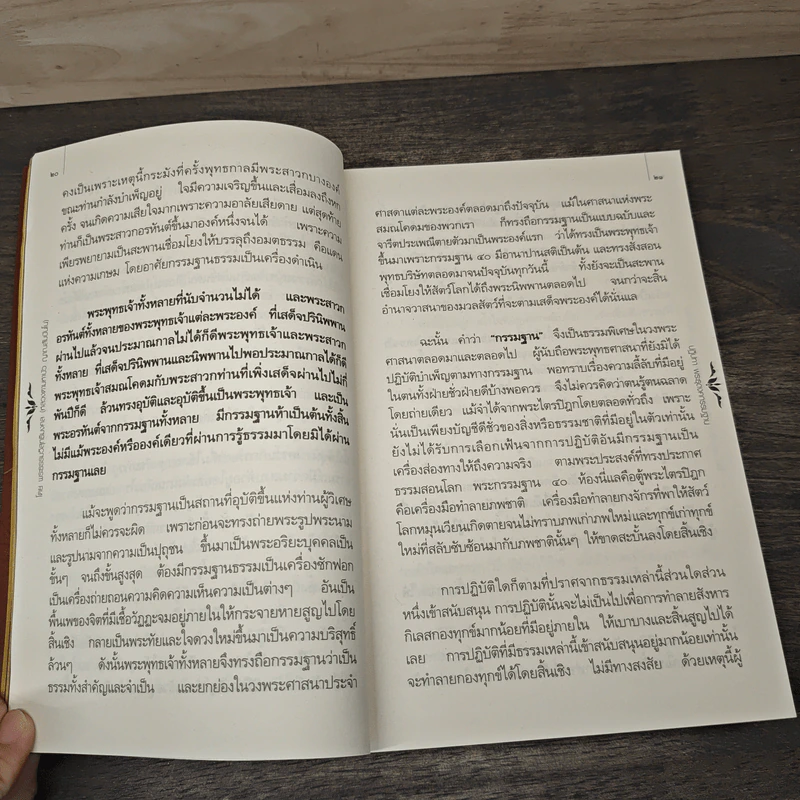 ๒๐
คงเป็นเพราะเหตุนี้กระมังที่ครั้งพุทธกาลมีพระสาวกบางองค์
ขณะท่านกำลังบำเพ็ญอยู่ ใจมีความเจริญขึ้นและเสื่อมลงถึงหก
ครั้ง จนเกิดความเสียใจมากเพราะความอาลัยเสียดาย แต่สุดท้าย
ท่านก็เป็นพระสาวกอรหันต์ขึ้นมาองค์หนึ่งจนได้ เพราะความ
เพียรพยายามเป็นสะพานเชื่อมโยงให้บรรลุถึงอมตธรรม คือแดน
แห่งความเกษม โดยอาศัยกรรมฐานธรรมเป็นเครื่องดำเนิน
พระพุทธเจ้าทั้งหลายที่นับจำนวนไม่ได้ และพระสาวก
อรหันต์ทั้งหลายของพระพุทธเจ้าแต่ละพระองค์ ที่เสด็จปรินิพพาน
ผ่านไปแล้วจนประมาณกาลไม่ได้ก็ดีพระพุทธเจ้าและพระสาวก
ทั้งหลาย ที่เสด็จปรินิพพานและนิพพานไปพอประมาณกาลได้ก็ดี
พระพุทธเจ้าสมณโคดมกับพระสาวกท่านที่เพิ่งเสด็จผ่านไปไม่กี่
พันปีก็ดี ล้วนทรงอุบัติและอุบัติขึ้นเป็นพระพุทธเจ้า และเป็น
พระอรหันต์จากกรรมฐานทั้งหลาย มีกรรมฐานห้าเป็นต้นทั้งสิ้น
ไม่มีแม้พระองค์หรือองค์เดียวที่ผ่านการรู้ธรรมมาโดยมิได้ผ่าน
กรรมฐานเลย
แม้จะพูดว่ากรรมฐานเป็นสถานที่อุบัติขึ้นแห่งท่านผู้วิเศษ
ทั้งหลายก็ไม่ควรจะผิด เพราะก่อนจะทรงถ่ายพระรูปพระนาม
และรูปนามจากความเป็นปุถุชน ขึ้นมาเป็นพระอริยะบุคคลเป็น
ขั้นๆ จนถึงขั้นสูงสุด ต้องมีกรรมฐานธรรมเป็นเครื่องซักฟอก
เป็นเครื่องถ่ายถอนความคิดความเห็นความเป็นต่างๆ อันเป็น
พื้นเพของจิตที่มีเชื้อวัฏฏะจมอยู่ภายในให้กระจายหายสูญไปโดย
สิ้นเชิง กลายเป็นพระทัยและใจดวงใหม่ขึ้นมาเป็นความบริสุทธิ์
ล้วนๆ ดังนั้นพระพุทธเจ้าทั้งหลายจึงทรงถือกรรมฐานว่าเป็น
ธรรมทั้งสำคัญและจำเป็น และยกย่องในวงพระศาสนาประจำ
๒๑
ศาสดาแต่ละพระองค์ตลอดมาถึงปัจจุบัน แม้ในศาสนาแห่งพระ
สมณโคดมของพวกเรา ก็ทรงถือกรรมฐานเป็นแบบฉบับและ
จารีตประเพณีตายตัวมาเป็นพระองค์แรก ว่าได้ทรงเป็นพระพุทธเจ้า
ขึ้นมาเพราะกรรมฐาน ๔๐ มีอานาปานสติเป็นต้น และทรงสั่งสอน
พุทธบริษัทตลอดมาจนปัจจุบันทุกวันนี้ ทั้งยังจะเป็นสะพาน
เชื่อมโยงให้สัตว์โลกได้ถึงพระนิพพานตลอดไป จนกว่าจะสิ้น
อำนาจวาสนาของมวลสัตว์ที่จะตามเสด็จพระองค์ได้นั่นแล
ฉะนั้น คำว่า "กรรมฐาน" จึงเป็นธรรมพิเศษในวงพระ
ศาสนาตลอดมาและตลอดไป ผู้นับถือพระพุทธศาสนาที่ยังมิได้
ปฏิบัติบำเพ็ญตามทางกรรมฐาน พอทราบเรื่องความลี้ลับที่มีอยู่
ในตนทั้งฝ่ายชั่วฝ่ายดีบ้างพอควร จึงไม่ควรคิดว่าตนรู้ตนฉลาด
โดยถ่ายเดียว แม้จำได้จากพระไตรปิฎกโดยตลอดทั่วถึง เพราะ
นั่นเป็นเพียงบัญชีดีชั่วของสิ่งหรือธรรมชาติที่มีอยู่ในตัวเท่านั้น
ยังไม่ได้รับการเลือกเฟ้นจากการปฏิบัติอันมีกรรมฐานเป็น
เครื่องส่องทางให้ถึงความจริง ตามพระประสงค์ที่ทรงประกาศ
ธรรมสอนโลก พระกรรมฐาน ๔๐ ห้องนี่แลคือตู้พระไตรปิฎก
คือเครื่องมือทำลายภพชาติ เครื่องมือทำลายกงจักรที่พาให้สัตว์
โลกหมุนเวียนเกิดตายจนไม่ทราบภพเก่าภพใหม่และทุกข์เก่าทุกข์
ใหม่ที่สลับซับซ้อนมากับภพชาตินั้นๆ ให้ขาดสะบั้นลงโดยสิ้นเชิง
การปฏิบัติใดก็ตามที่ปราศจากธรรมเหล่านี้ส่วนใดส่วน
หนึ่งเข้าสนับสนุน การปฏิบัตินั้นจะไม่เป็นไปเพื่อการทำลายสังหาร
กิเลสกองทุกข์มากน้อยที่มีอยู่ภายใน ให้เบาบางและสิ้นสูญไปได้
เลย การปฏิบัติที่มีธรรมเหล่านี้เข้าสนับสนุนอยู่มากน้อยเท่านั้น
จะทำลายกองทุกข์ได้โดยสิ้นเชิง ไม่มีทางสงสัย ด้วยเหตุนี้ผู้